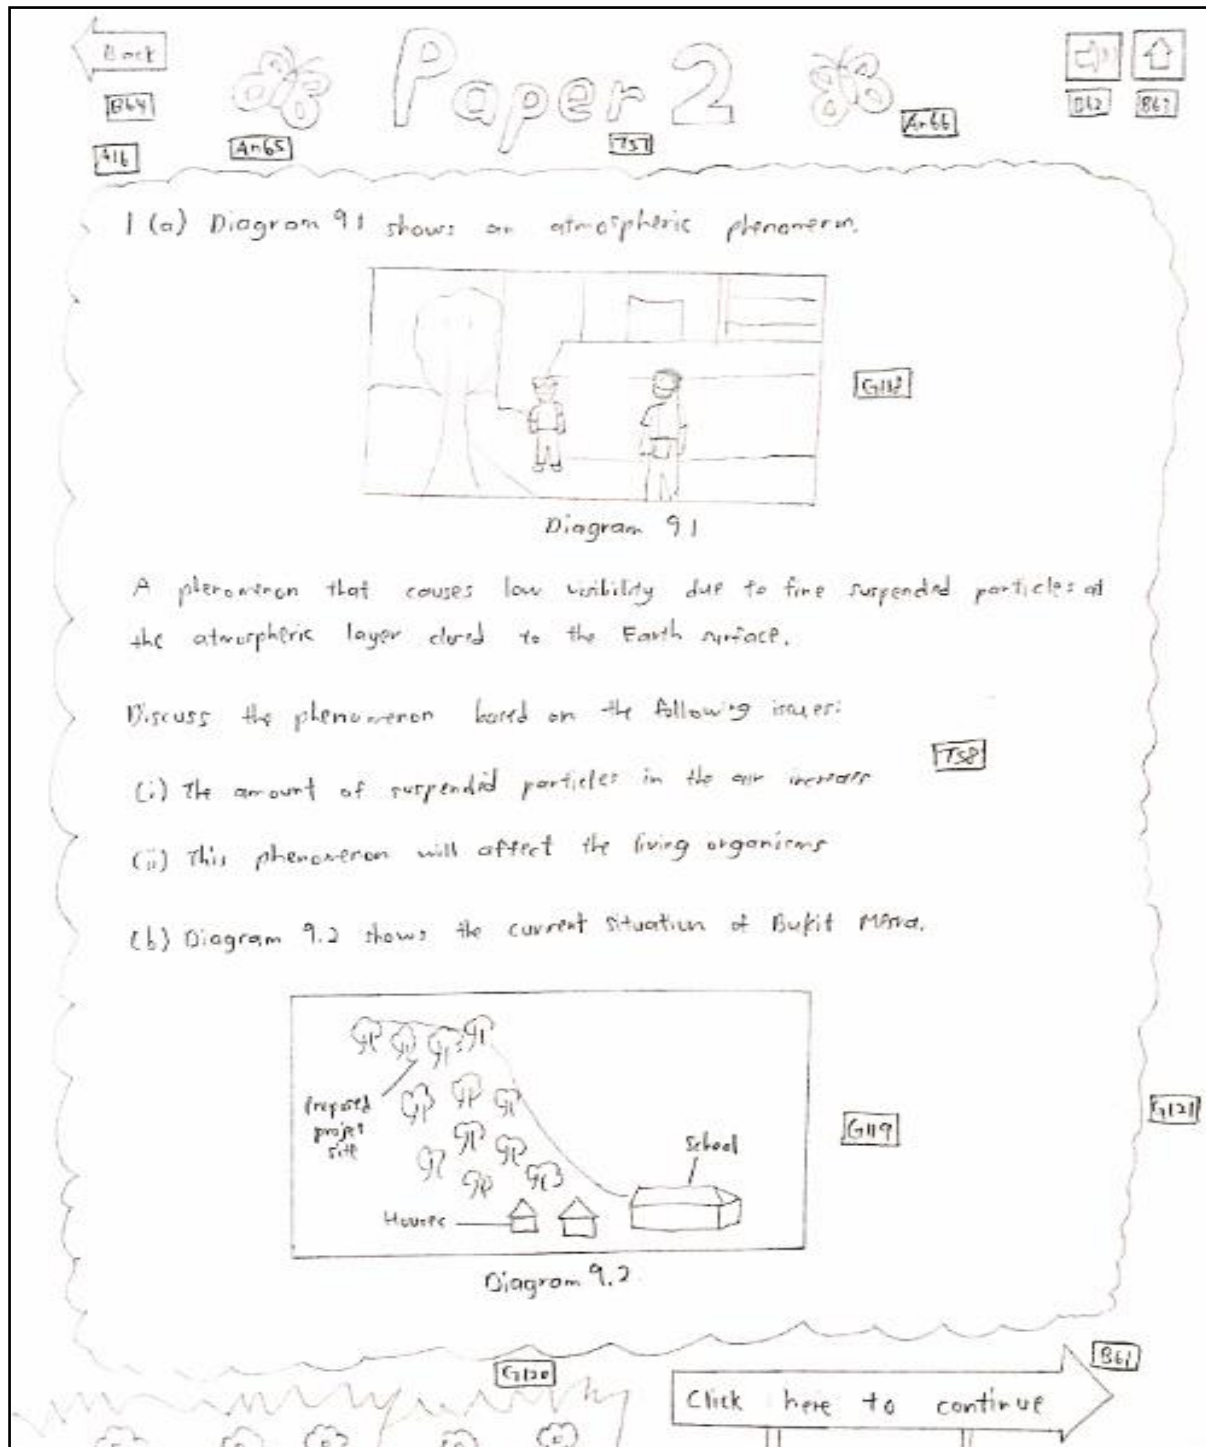 Back
Paper 2
B64
B62
An65
T57
An66
A16
1 (a) Diagram 9.1 shows an atmospheric phenomenon.
G118
Diagram 9.1
A phenomenon that causes low visibility due to fine suspended particles at
the atmospheric layer closed to the Earth surface.
Discuss the phenomenon based on the following issues:
T58
(i) The amount of suspended particles in the air increase
(ii) This phenomenon will affect the living organisms
(b) Diagram 9.2 shows the current situation of Bukit
Proposed
project
site
School
Houses
G119
G121
Diagram 9.2
G120
B61
Click here to continue